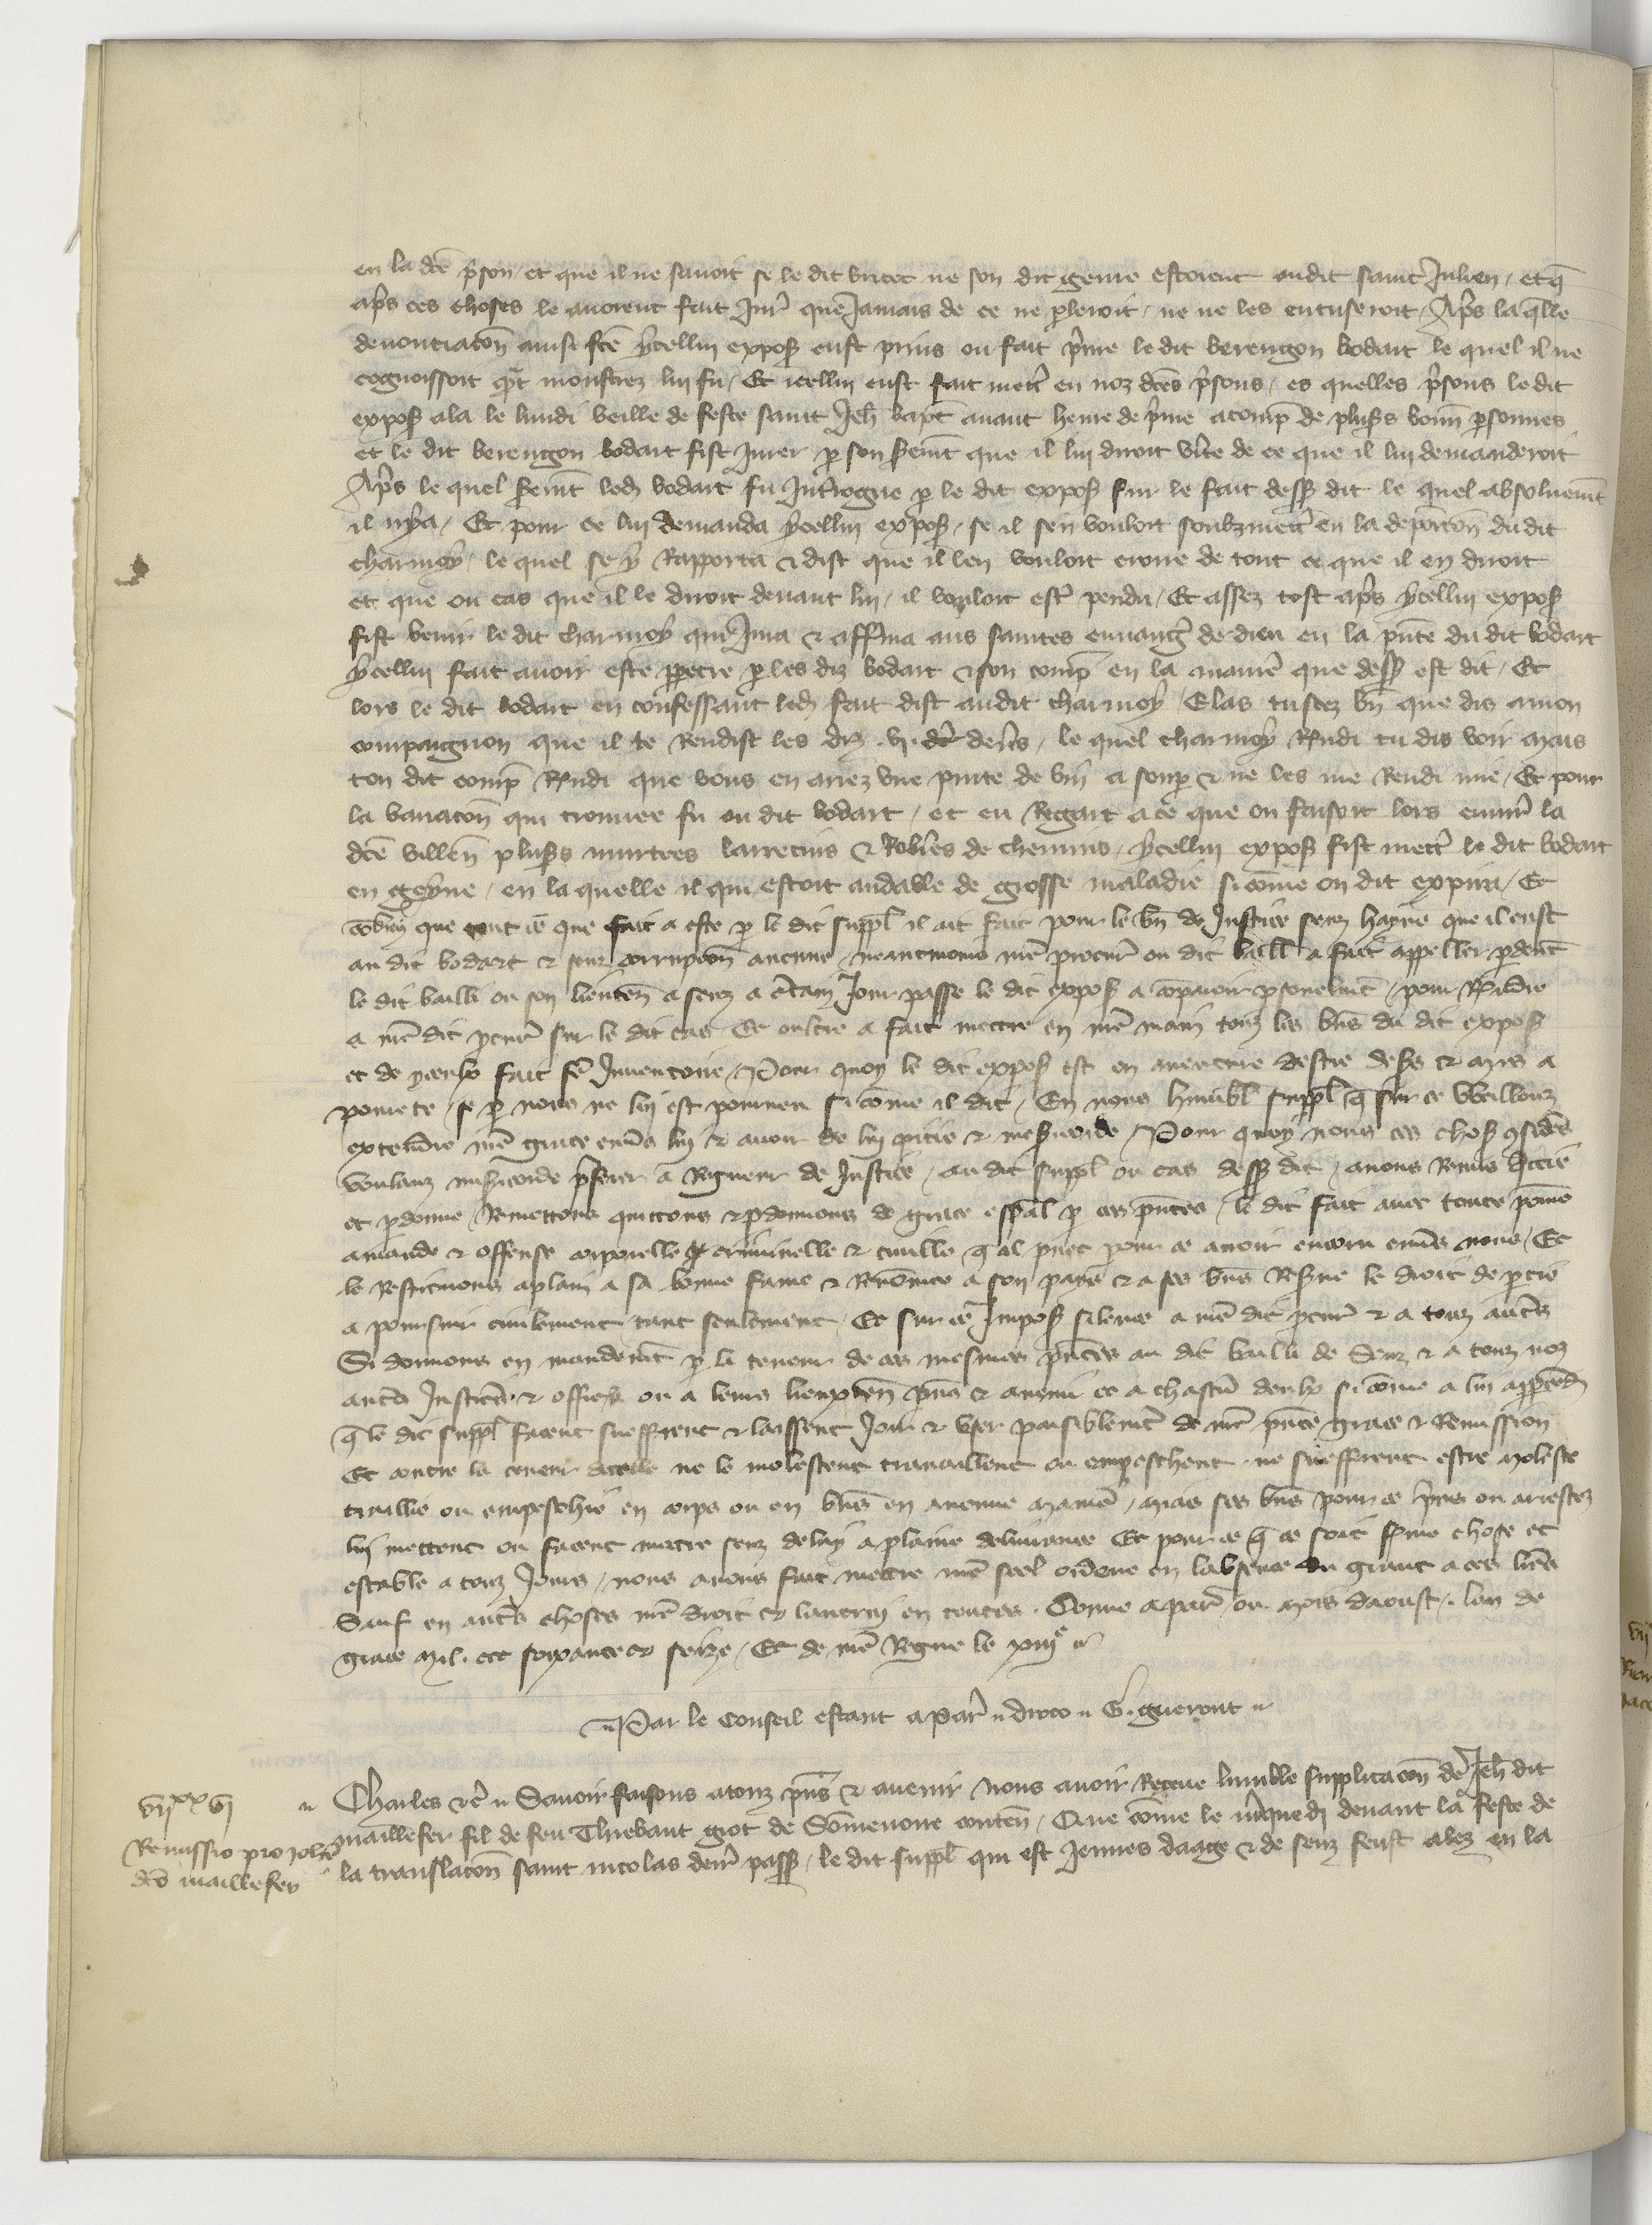 en la dcē pͥson / et que il ne sauoit se le dit vincet ne son dit genre estoient oudit saint Julien / et q̄
apͬs ces choses le auoient fait Jurͬ que Jamais de ce ne ꝑleroit / ne ne les encuseroit Apͬs la qͣlle
denonciacōn ainsi fcē ycellui expoꝰ eust prins ou fait pͬnre le dit berengon bodart le quel il ne
cognoissoit qͣnt monstrez lui fu / Et icellui eust fait mettͬ en noz dcēs pͥsons / es quelles pͥsons le dit
expoꝰ ala le lundi veille de feste saint Jeh̄ bapt̄ auant heure de pͥme acomp̄ de pluꝰs bonn̄ ꝑsonnes
et le dit berengon bodart fist Jurer ꝑ son ẜement que il lui diroit vͥte de ce que il lui demanderoit
Apͬs le quel ẜemēt led̄ bodart fu Jntͬrogue ꝑ le dit expoꝰ sur le fait dessꝰ dit le quel absoluemēt
il nya / Et pour ce lui demanda ycellui expoꝰ / se il sen vouloit soubzmettͬ en la deposicōn du dit
charmoy / le quel se y Rapporta & dist que il len vouloit croire de tout ce que il en diroit
et que ou cas que il le diroit deuant lui / il vouloit estͬ pendu / Et assez tost apͬs ycellui expoꝰ
fist venir le dit charmoy qui Jura & afferma aus saintes euuangͥ de dieu en la pn̄ce du dit bodart
ycellui fait auoir este ꝑpetre ꝑ les diz bodart & son comp̄ en la manieͬ que dessꝰ est dit / Et
lors le dit bodart en confessant led̄ fait dist audit charmoy / Elas tu scez bn̄ que dis a mon
compaignon que il te Rendist les diz .vj. dͬ deñs / le quel charmoy Rn̄di tu dis voir mais
ton dit comp̄ Rn̄di que vous en ariez vne pinte de vin a soup̄ & ne les me Rendi mie / Et pour
la variacōn qui trouuee fu ou dit bodart / et eu Regart a ce que on faisoit lors enuirͬ la
dcē villēn pluꝰs murtres larrecins & Robͥes de chemins / ycellui expoꝰ fist mettͬ le dit bodart
en geyne / en la quelle il qui estoit andable de grosse maladie si cōme on dit expira / Et
cōbien que tout ce que fait a este ꝑ le dit suppl̄ il ait fait pour le bn̄ de Justice senz hayne que il eust
au dit bodart & senz corrupcōn aucune / neantmoins nrē procurͬ ou dit baill̄ a fait appeller ꝑdeuāt
le dit bailli ou son lieuteñ a senz a cͬtain Jour passe le dit expoꝰ a cōparoir ꝑsonelmēt / pour Rn̄dre
a nrē dit ꝓcurͬ sur le dit cas Et oultre a fait mettre en nrē main touz les bn̄s du dit expoꝰ
et de yceulx fait fē Jnuentoire / Pour quoy le dit expoꝰ est en auenture destre desers & mis a
pourete / se ꝑ nous ne lui est pourueu si cōme il dit / En nous humbl̄ suppl̄ q̄ sur ce vueillons
extendre nrē grace enūs lui & auoir de lui pitie & miẜicorde / Pour quoy nous ces choꝰ ꝯsidēs
voulans miẜicorde pͬferer a Rigueur de Justice / au dit suppl̄ ou cas dessꝰ dit / auons Remis quicte
et ꝑdonne / Remettons quittons & ꝑdonnons de grace esp̄al ꝑ ces pn̄tes / le dit fait auec toute peine
amende & offense corporelle criminelle & ciuille q̄ il puet pour ce auoir encoru enūs nous / Et
le Restituons a plain a sa bonne fame & Renōmee a son pais & a ses bn̄s Reẜue le droit de ꝑtie
a poursuir ciuilement tant seulement / Et sur ce Jmpoꝰ silence a nrē dit ꝓcurͬ & a touz autͬs
Si donnons en mandemēt ꝑ la teneur de ces mesmes pn̄tes au dit bailli de Senz & a touz noz
autͬs Justicͬs & officͬs ou a leurs lieuxteñ pn̄s & auenir et a chascū deulx si cōme a lui appartendͬ
q̄ le dit suppl̄ facent sueffrent & laissent Joir & vser paisiblemēt de nrē pn̄te grace & Remission
Et contre la teneur dicelle ne le molestent trauaillent ou empeschent ne sueffrent estre moleste
traullie ou empeschie en corps ou en bn̄s en aucune manieͬ / mais ses bn̄s pour ce pͥns ou arrestez
lui mettent ou facent mettre senz delay a plaine deliurance Et pour ce q̄ ce soit ferme chose et
estable a touz Jours / nous auons fait mettre nrē seel ordene en labsence du grant a ces lrēs
Sauf en autͬs choses nrē droit & lautrui en toutes . Donne a parͥ ou mois daoust / lan de
grace mil. ccc soixante & seize / Et de nrē Regne le xiijͤ ..
..Par le Conseil estant a parͥ .. droco .. G. gueront ..
vijˣˣvj
Remissio pro Joh̄e
dc̄o maillefer
Charles &cͣ .. Sauoir faisons a touz pn̄s & auenir Nous auoir Receue lumble supplicacōn de Jeh̄ dit
maillefer fil de feu Thiebaut giot de Sōmeuoire conteñ / Que cōme le mͬquedi deuant la feste de
la translacōn saint nicolas derͬ passͤ / le dit suppl̄ qui est Jeunes daage & de senz feust alez en la